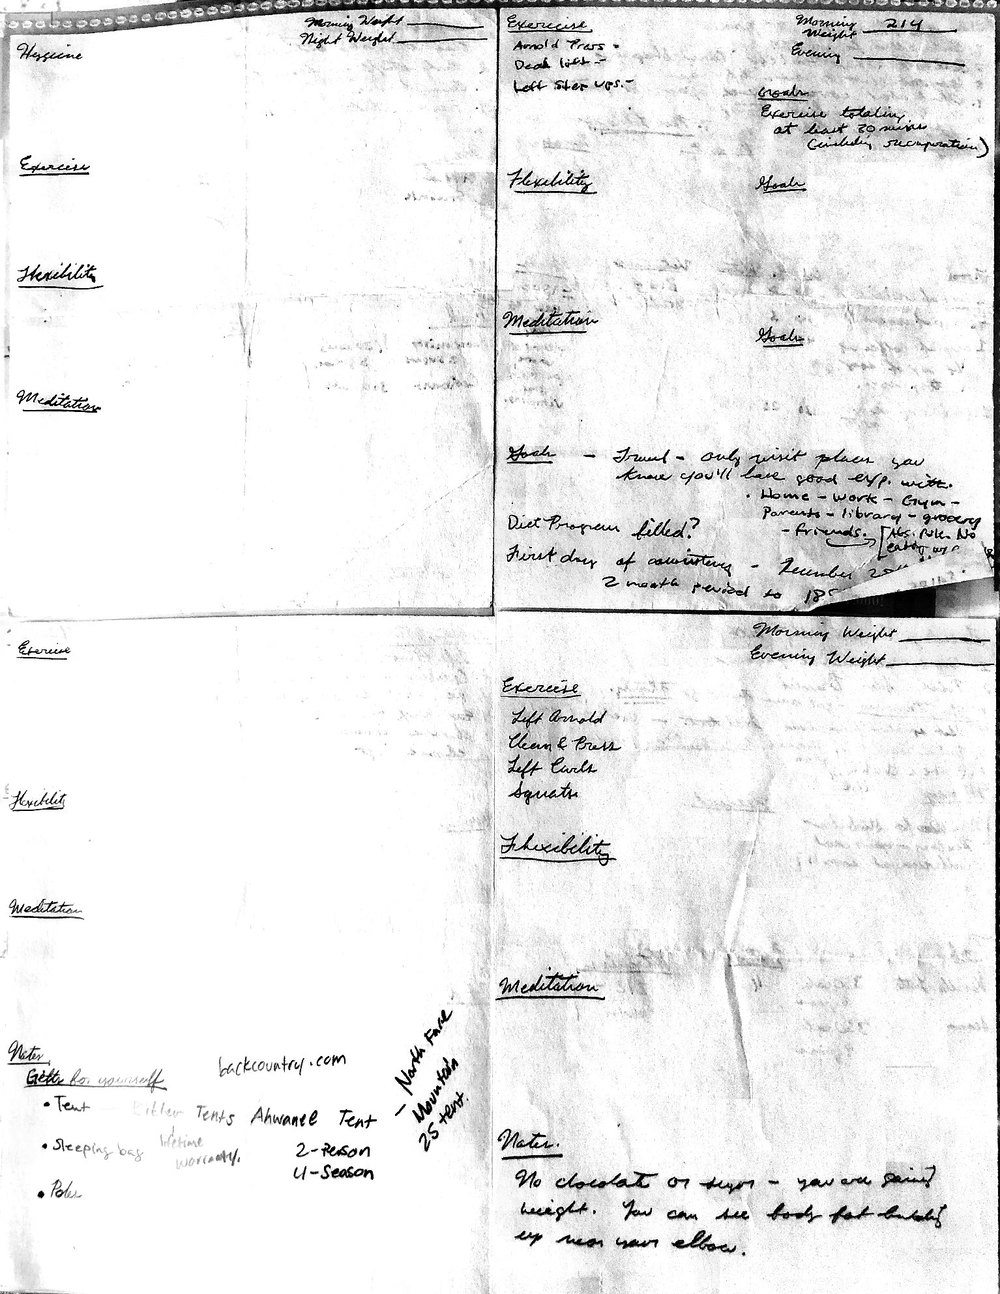 Morning Weight
Night Weight
Hygiene
Exercise
Flexibility
Meditation
Exercise
Morning
Weight 214
Evening
Arnold Press -
Dead lift -
Left Step ups. -
Goals
Exercise totaling
at least 20 mins
(including recuperation)
Flexibility
Goals
Meditation
Goals
Goals - Travel - only visit places you
know you'll have good exp. with.
. Home - Work - Gym -
Parents - library - grocery
- friends. [Abs. Rule No
eating
Diet Program filled?
First day of consistency - December
2 month period to 185
Exercise
Flexibilit
Meditation
Notes
Gifts for yourself
backcountry.com
• Tent - Bibler Tents Ahwanee Tent
lifetime
warranty.
2-Person
4-Season
• Sleeping bag
• Poles
- North Face
Mountain
25 tent.
Morning Weight
Evening Weight
Exercise
Left Arnold
Clean & Press
Left Curls
Squats
Flexibility
Meditation
Notes.
No chocolate or sugar - you are gaining
weight. You can see body fat building
up near your elbow.